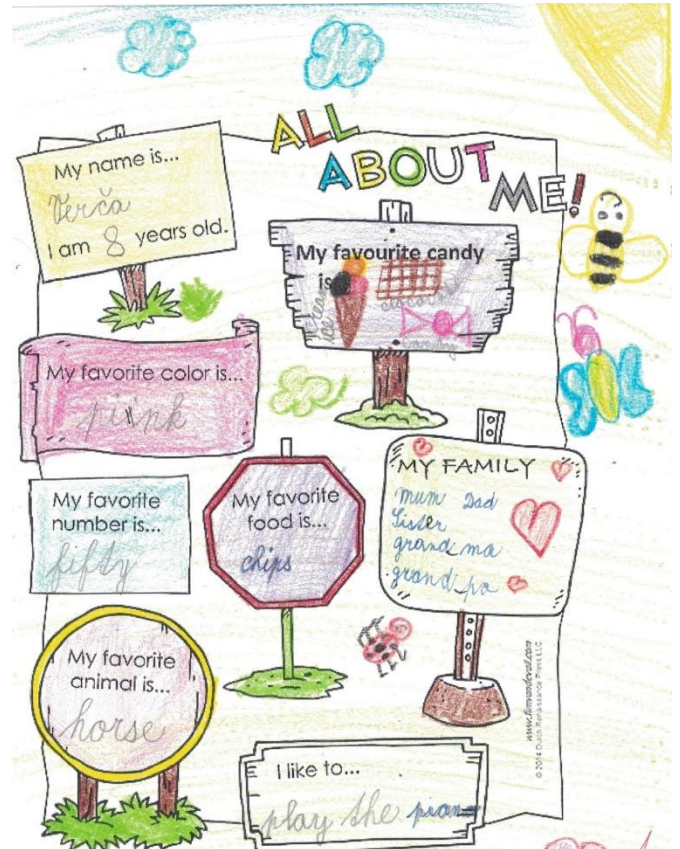 ALL
ABOUT
ME!
My name is...
Verča
I am 8 years old.
My favourite candy
is
My favorite color is...
piink
My favorite
number is...
fifty
My favorite
food is...
chips
MY FAMILY
mum Dad
Sister
grand ma
grand pa
My favorite
animal is...
horse
I like to...
play the piano
www.timvandevall.com
© 2014 Dutch Renaissance Press LLC